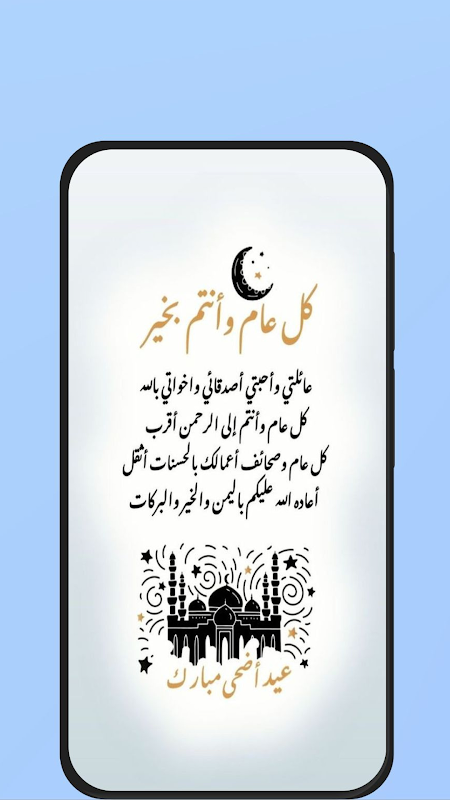 كل عام وأنتم بخير
عائلتي وأحبتي أصدقائي واخواتي بالله
كل عام وأنتم إلى الرحمن أقرب
كل عام وصحائف أعمالك بالحسنات أثقل
أعاده الله عليكم باليمن والخير والبركات
عيد أضحى مبارك